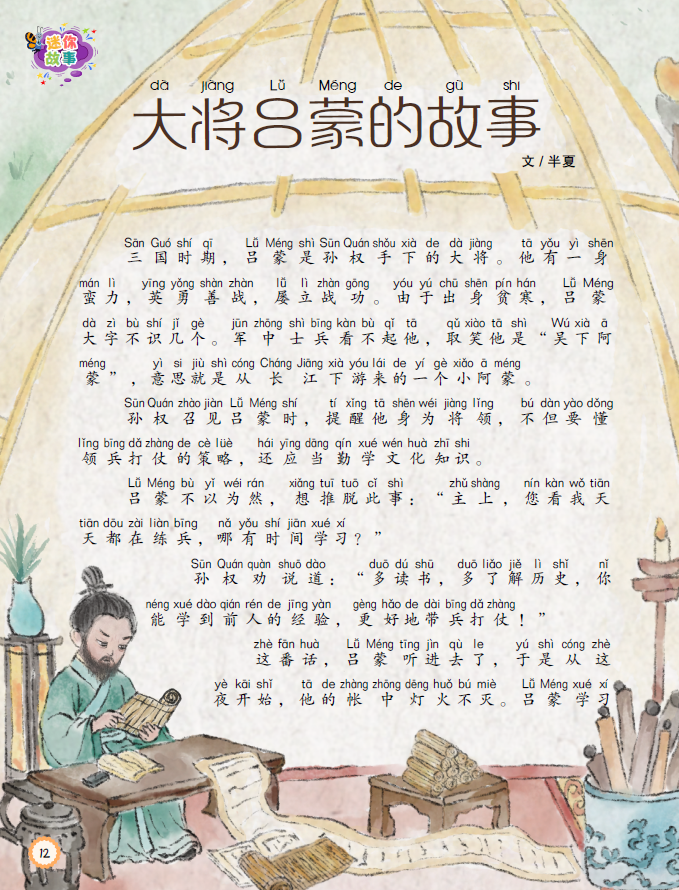 迷你
故事
dà jiàng Lǚ Méng de gù shi
大将吕蒙的故事
文 / 半夏
Sān Guó shí qī Lǚ Méng shì Sūn Quán shǒu xià de dà jiàng tā yǒu yì shēn
三国时期，吕蒙是孙权手下的大将。他有一身
mán lì yīng yǒng shàn zhàn lǚ lì zhàn gōng yóu yú chū shēn pín hán Lǚ Méng
蛮力，英勇善战，屡立战功。由于出身贫寒，吕蒙
dà zì bù shí jǐ gè jūn zhōng shì bīng kàn bù qǐ tā qǔ xiào tā shì Wú xià ā
大字不识几个。军中士兵看不起他，取笑他是“吴下阿
méng yì si jiù shì cóng Cháng Jiāng xià yóu lái de yí gè xiǎo ā méng
蒙”，意思就是从长江下游来的一个小阿蒙。
Sūn Quán zhào jiàn Lǚ Méng shí tí xǐng tā shēn wéi jiàng lǐng bú dàn yào dǒng
孙权召见吕蒙时，提醒他身为将领，不但要懂
lǐng bīng dǎ zhàng de cè lüè hái yīng dāng qín xué wén huà zhī shi
领兵打仗的策略，还应当勤学文化知识。
Lǚ Méng bù yǐ wéi rán xiǎng tuī tuō cǐ shì zhǔ shàng nín kàn wǒ tiān
吕蒙不以为然，想推脱此事：“主上，您看我天
tiān dōu zài liàn bīng nǎ yǒu shí jiān xué xí
天都在练兵，哪有时间学习？”
Sūn Quán quàn shuō dào duō dú shū duō liǎo jiě lì shǐ nǐ
孙权劝说道：“多读书，多了解历史，你
néng xué dào qián rén de jīng yàn gèng hǎo de dài bīng dǎ zhàng
能学到前人的经验，更好地带兵打仗！”
zhè fān huà Lǚ Méng tīng jìn qù le yú shì cóng zhè
这番话，吕蒙听进去了，于是从这
yè kāi shǐ tā de zhàng zhōng dēng huǒ bú miè Lǚ Méng xué xí
夜开始，他的帐中灯火不灭。吕蒙学习
12